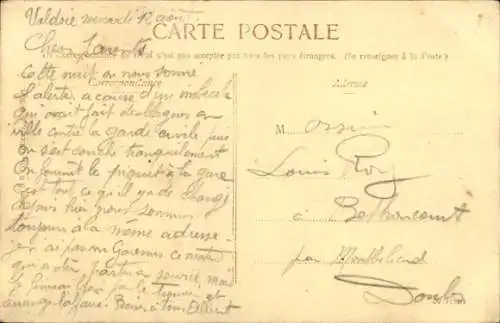 Valdoie mercredi 12 août
CARTE POSTALE
Chers Parents
La Correspondance au recto n'est pas acceptée par tous les pays étrangers. (Se renseigner à la Poste)
Correspondance
Adresse
Cette nuit on nous sonne
l'alerte, a cause d'un imbécile
qui avait fait des blagues en
ville contre la garde civile, puis
on s'est couché tranquillement
On fournit le piquet à la gare
c'est tout ce qu'il y a de changé
depuis hier nous sommes
toujours à la même adresse.
j'en ai pas vu ce matin
qui a dû partir
le trouver et
Bons à tous Albert
M
Louis Roy
à Bethoncourt
par Montbéliard
Doubs